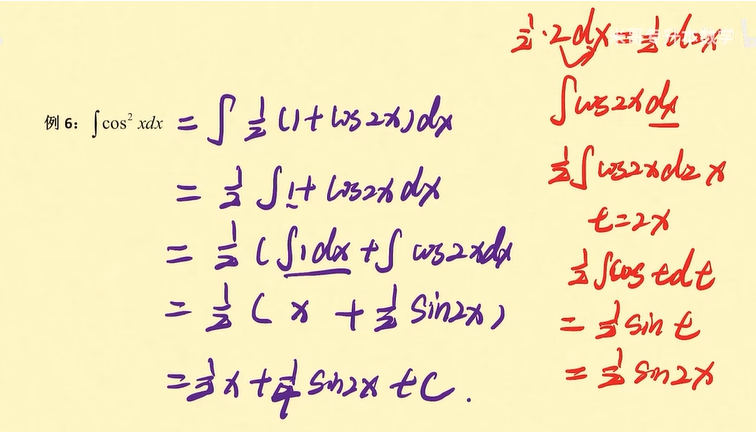 例 6：∫cos² xdx = ∫ 1/2 (1 + cos2x) dx
= 1/2 ∫ 1 + cos2x dx
= 1/2 ( ∫1dx + ∫ cos2xdx
= 1/2 ( x + 1/2 sin2x )
= 1/2 x + 1/4 sin2x + C .
1/2 · 2dx = 1/2 d2x
∫cos2xdx
1/2 ∫cos2xd2x
t=2x
1/2 ∫cos tdt
= 1/2 sin t
= 1/2 sin2x